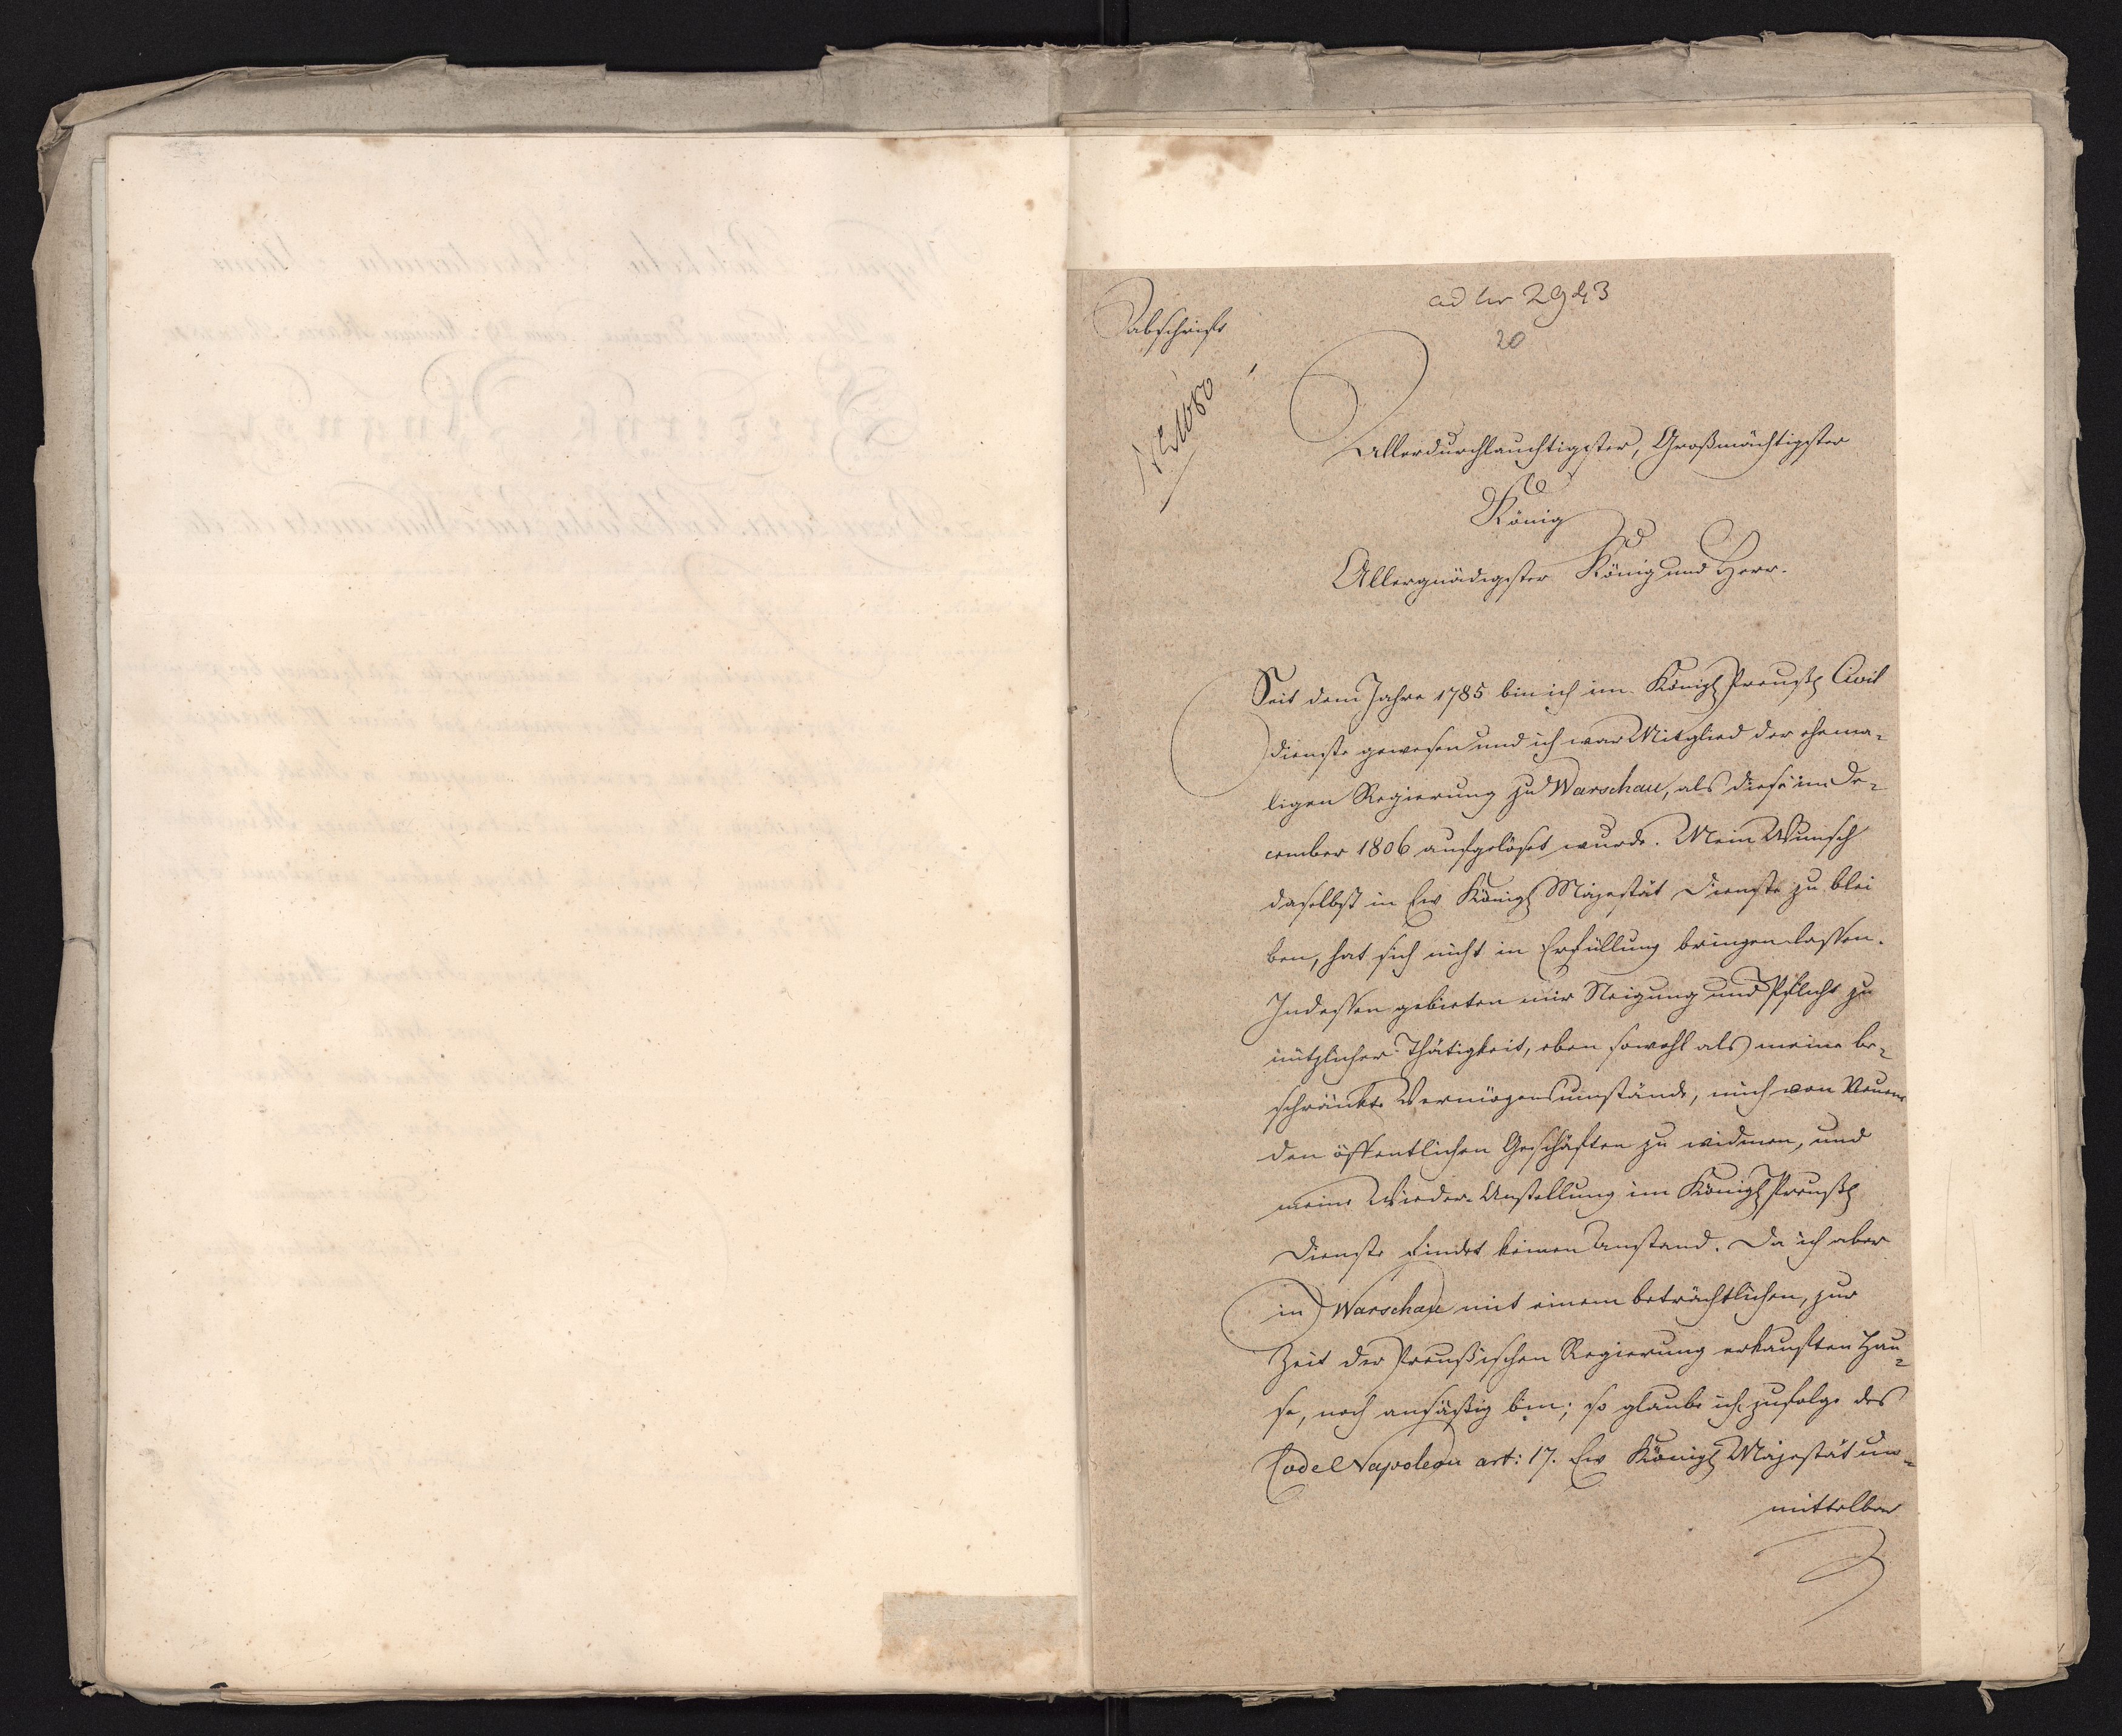 Abschrift
ad Nr 2943
20
N. 1080
Allerdurchlauchtigster, Großmächtigster
König
Allergnädigster König und Herr.
Seit dem Jahre 1785 bin ich im Königl Preußl Civil
dienste gewesen und ich war Mitglied der ehema-
ligen Regierung zu Warschau, als diese im De-
cember 1806 aufgelöset wurde. Mein Wunsch
daselbst in Ew Königl Majestät Dienste zu blei
ben, hat sich nicht in Erfüllung bringen lassen.
Indessen gebieten mir Neigung und Pflicht zu
nützlicher Thätigkeit, eben sowohl als meine be-
schränkte Vermögensumstände, mich von Neuem
den öffentlichen Geschäften zu widmen, und
meine Wieder-Anstellung im Königl Preußl
Dienste findet keinen Anstand. Da ich aber
in Warschau mit einem beträchtlichen, zur
Zeit der Preußischen Regierung erkauften Hau-
se, noch ansäßig bin; so glaube ich zufolge des
Code Napoleon art: 17. Ew Königl Majestät un-
mittelbar